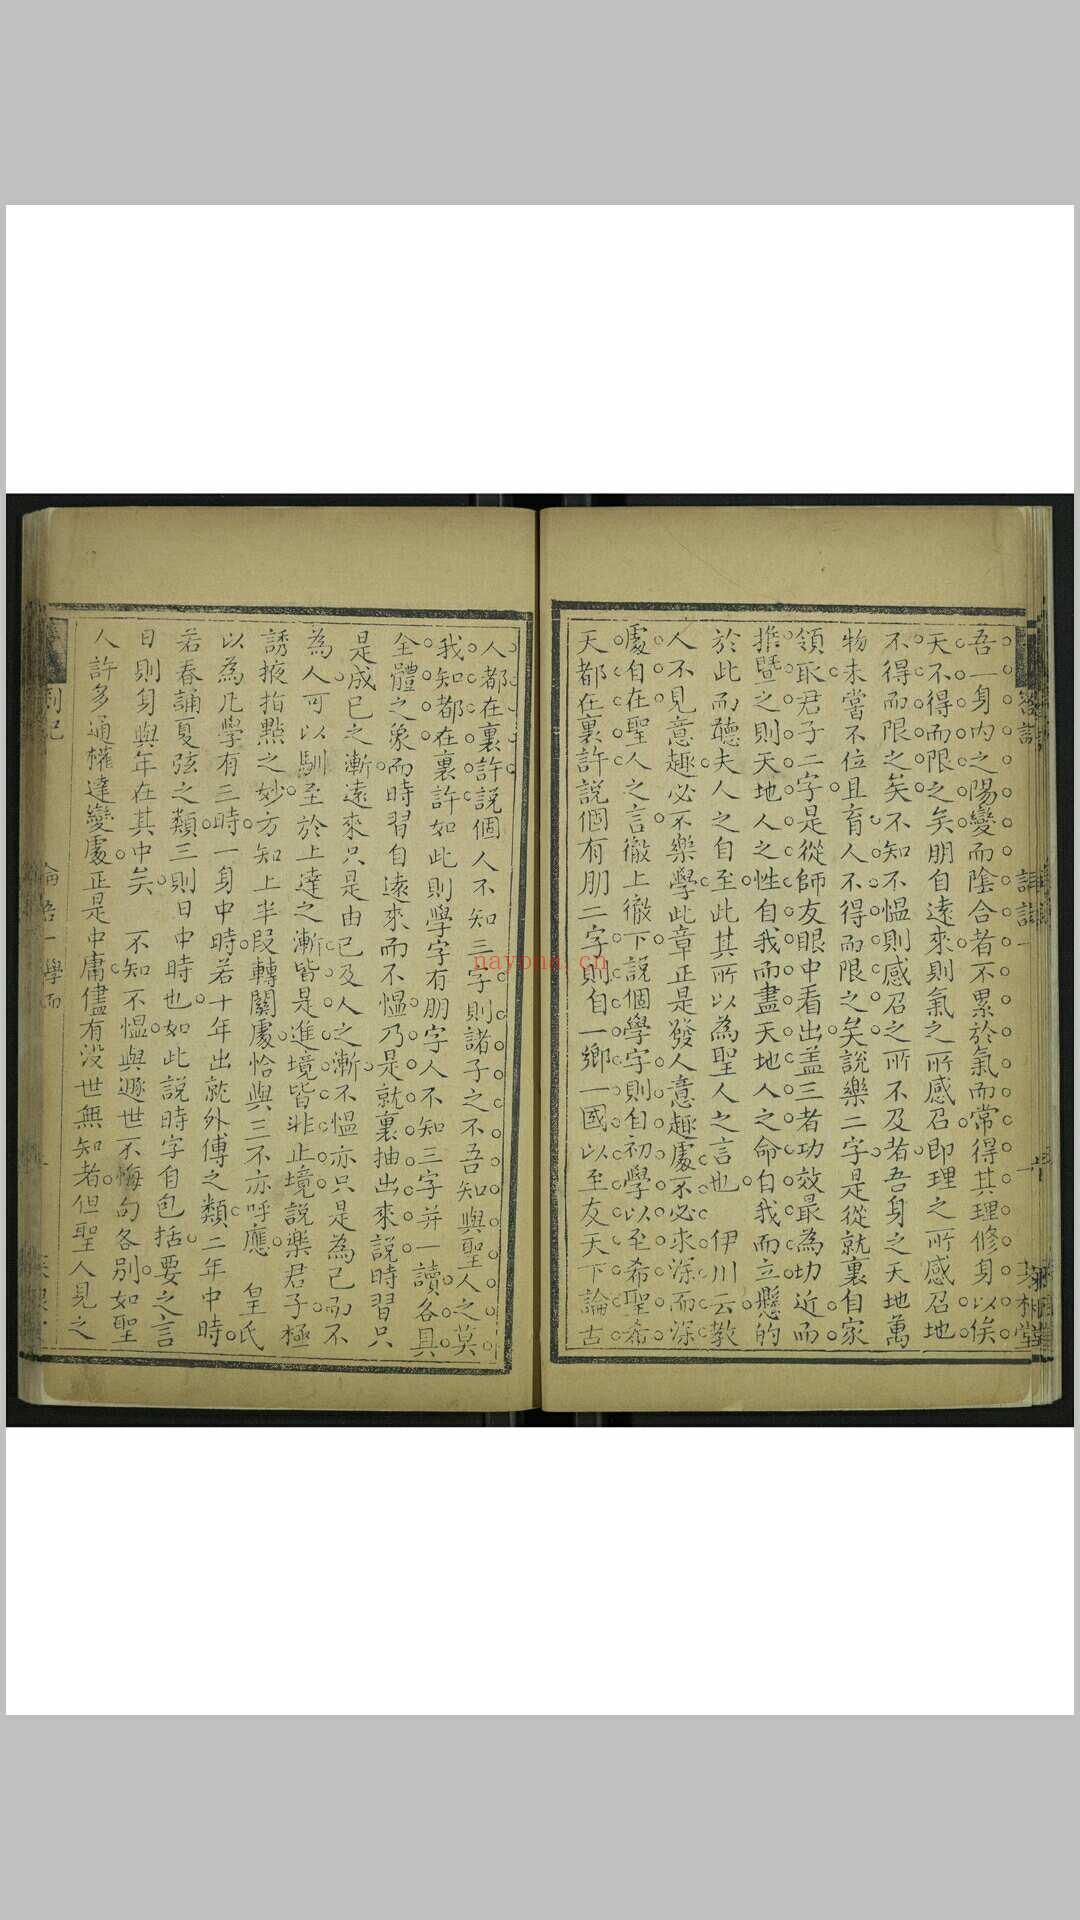 吾一身內之陽變而陰合者不累於氣而常得其理修身以俟
天不得而限之矣朋自遠來則氣之所感召即理之所感召地
不得而限之矣不知不慍則感召之所不及者吾身之天地萬
物未嘗不位且育人不得而限之矣說樂二字是從就裏自家
領取君子二字是從師友眼中看出盖三者功效最為切近而
推暨之則天地人之性自我而盡天地人之命自我而立懸的
於此而聽夫人之自至此其所以為聖人之言也 伊川云教
人不見意趣必不樂學此章正是發人意趣處不必求深而深
處自在聖人之言徹上徹下說個學字則自初學以至希聖希
天都在裏許說個有朋二字則自一鄉一國以至友天下論古
人都在裏許說個人不知三字則諸子之不吾知與聖人之莫
我知都在裏許如此則學字有朋字人不知三字并一讀各具
全體之象而時習自遠來而不慍乃是就裏抽出來說時習只
是成己之漸遠來只是由己及人之漸不慍亦只是為己而不
為人可以馴至於上達之漸皆是進境皆非止境說樂君子極
誘掖指點之妙方知上半段轉關處恰與三不亦呼應 皇氏
以為凡學有三時一身中時若十年出就外傅之類二年中時
若春誦夏弦之類三則日中時也如此說時字自包括要之言
日則身與年在其中矣 不知不慍與遯世不悔句各別如聖
人許多通權達變處正是中庸儘有沒世無知者但聖人見之
劄記
論語一學而